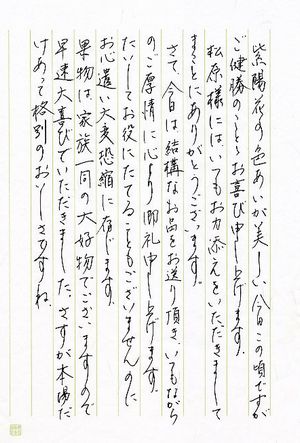 紫陽花の色あいが美しい今日この頃ですが
ご健勝のこととお喜び申し上げます。
松原様にはいつもお力添えをいただきまして
まことにありがとうございます。
さて、今日は結構なお品をお送り頂き、いつもながら
のご厚情に心より御礼申し上げます。
たいしてお役にたてることもございませんのに
お心遣い大変恐縮に存じます。
果物は家族一同の大好物でございますので
早速大喜びでいただきました。さすが本場だ
けあって格別のおいしさですね。